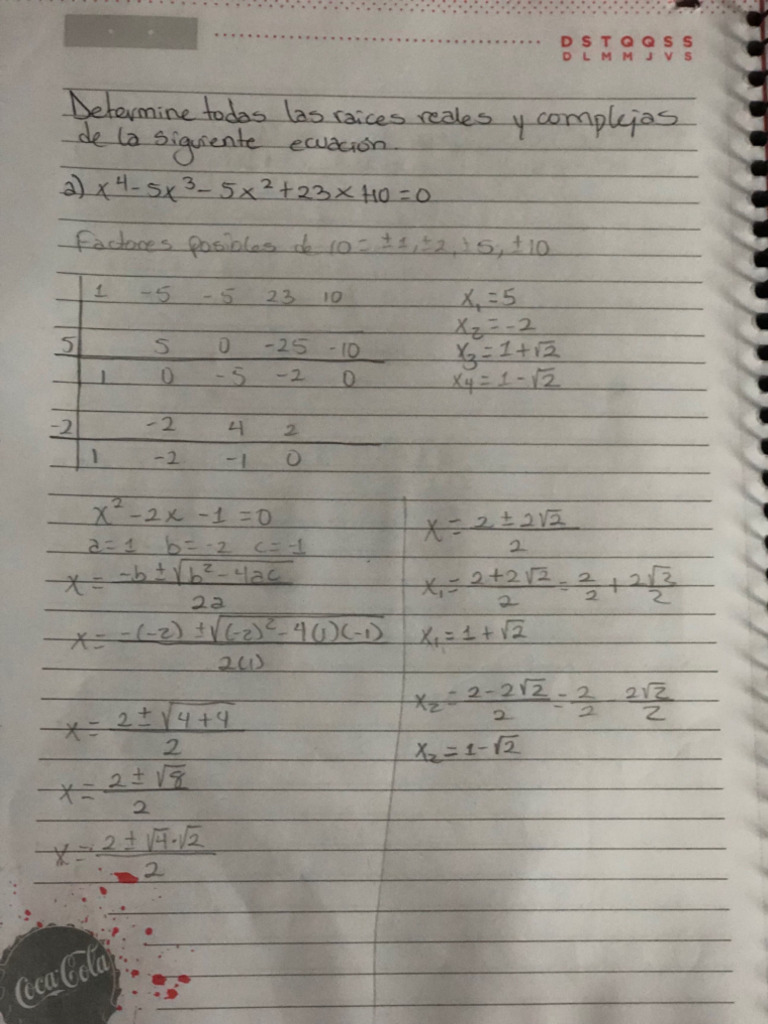 D S T Q Q S S
D L M M J V S
Determine todas las raices reales y complejas
de la siguiente ecuación.
a) x⁴ - 5x³ - 5x² + 23x + 10 = 0
Factores posibles de 10 = ±1, ±2, ±5, ±10
1 -5 -5 23 10
5 5 0 -25 -10
1 0 -5 -2 0
-2 -2 4 2
1 -2 -1 0
x₁ = 5
x₂ = -2
x₃ = 1 + √2
x₄ = 1 - √2
x² - 2x - 1 = 0
a = 1 b = -2 c = -1
x = (-b ± √(b² - 4ac))/2a
x = (-(-2) ± √((-2)² - 4(1)(-1)))/2(1)
x = (2 ± √(4 + 4))/2
x = (2 ± √8)/2
x = (2 ± √4·√2)/2
x = (2 ± 2√2)/2
x₁ = (2 + 2√2)/2 = 2/2 + 2√2/2
x₁ = 1 + √2
x₂ = (2 - 2√2)/2 = 2/2 - 2√2/2
x₂ = 1 - √2
Coca Cola